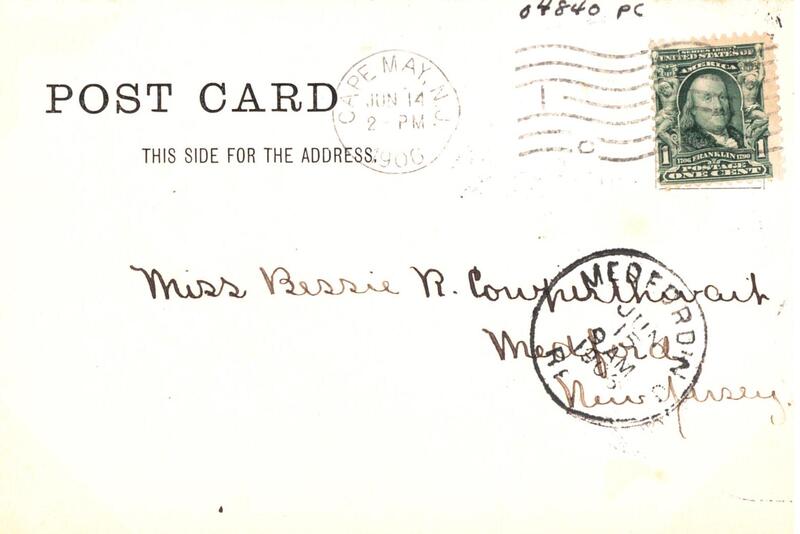 04840 PC
POST CARD
THIS SIDE FOR THE ADDRESS.
CAPE MAY, N.J.
JUN 14
2 - PM
1906
SERIES 1902
UNITED STATES OF
AMERICA
1 1706 FRANKLIN 1790 1
POSTAGE
ONE CENT
Miss Bessie R. Cowperthwait
Medford
New Jersey.
MEDFORD N.J.
JUN
AM